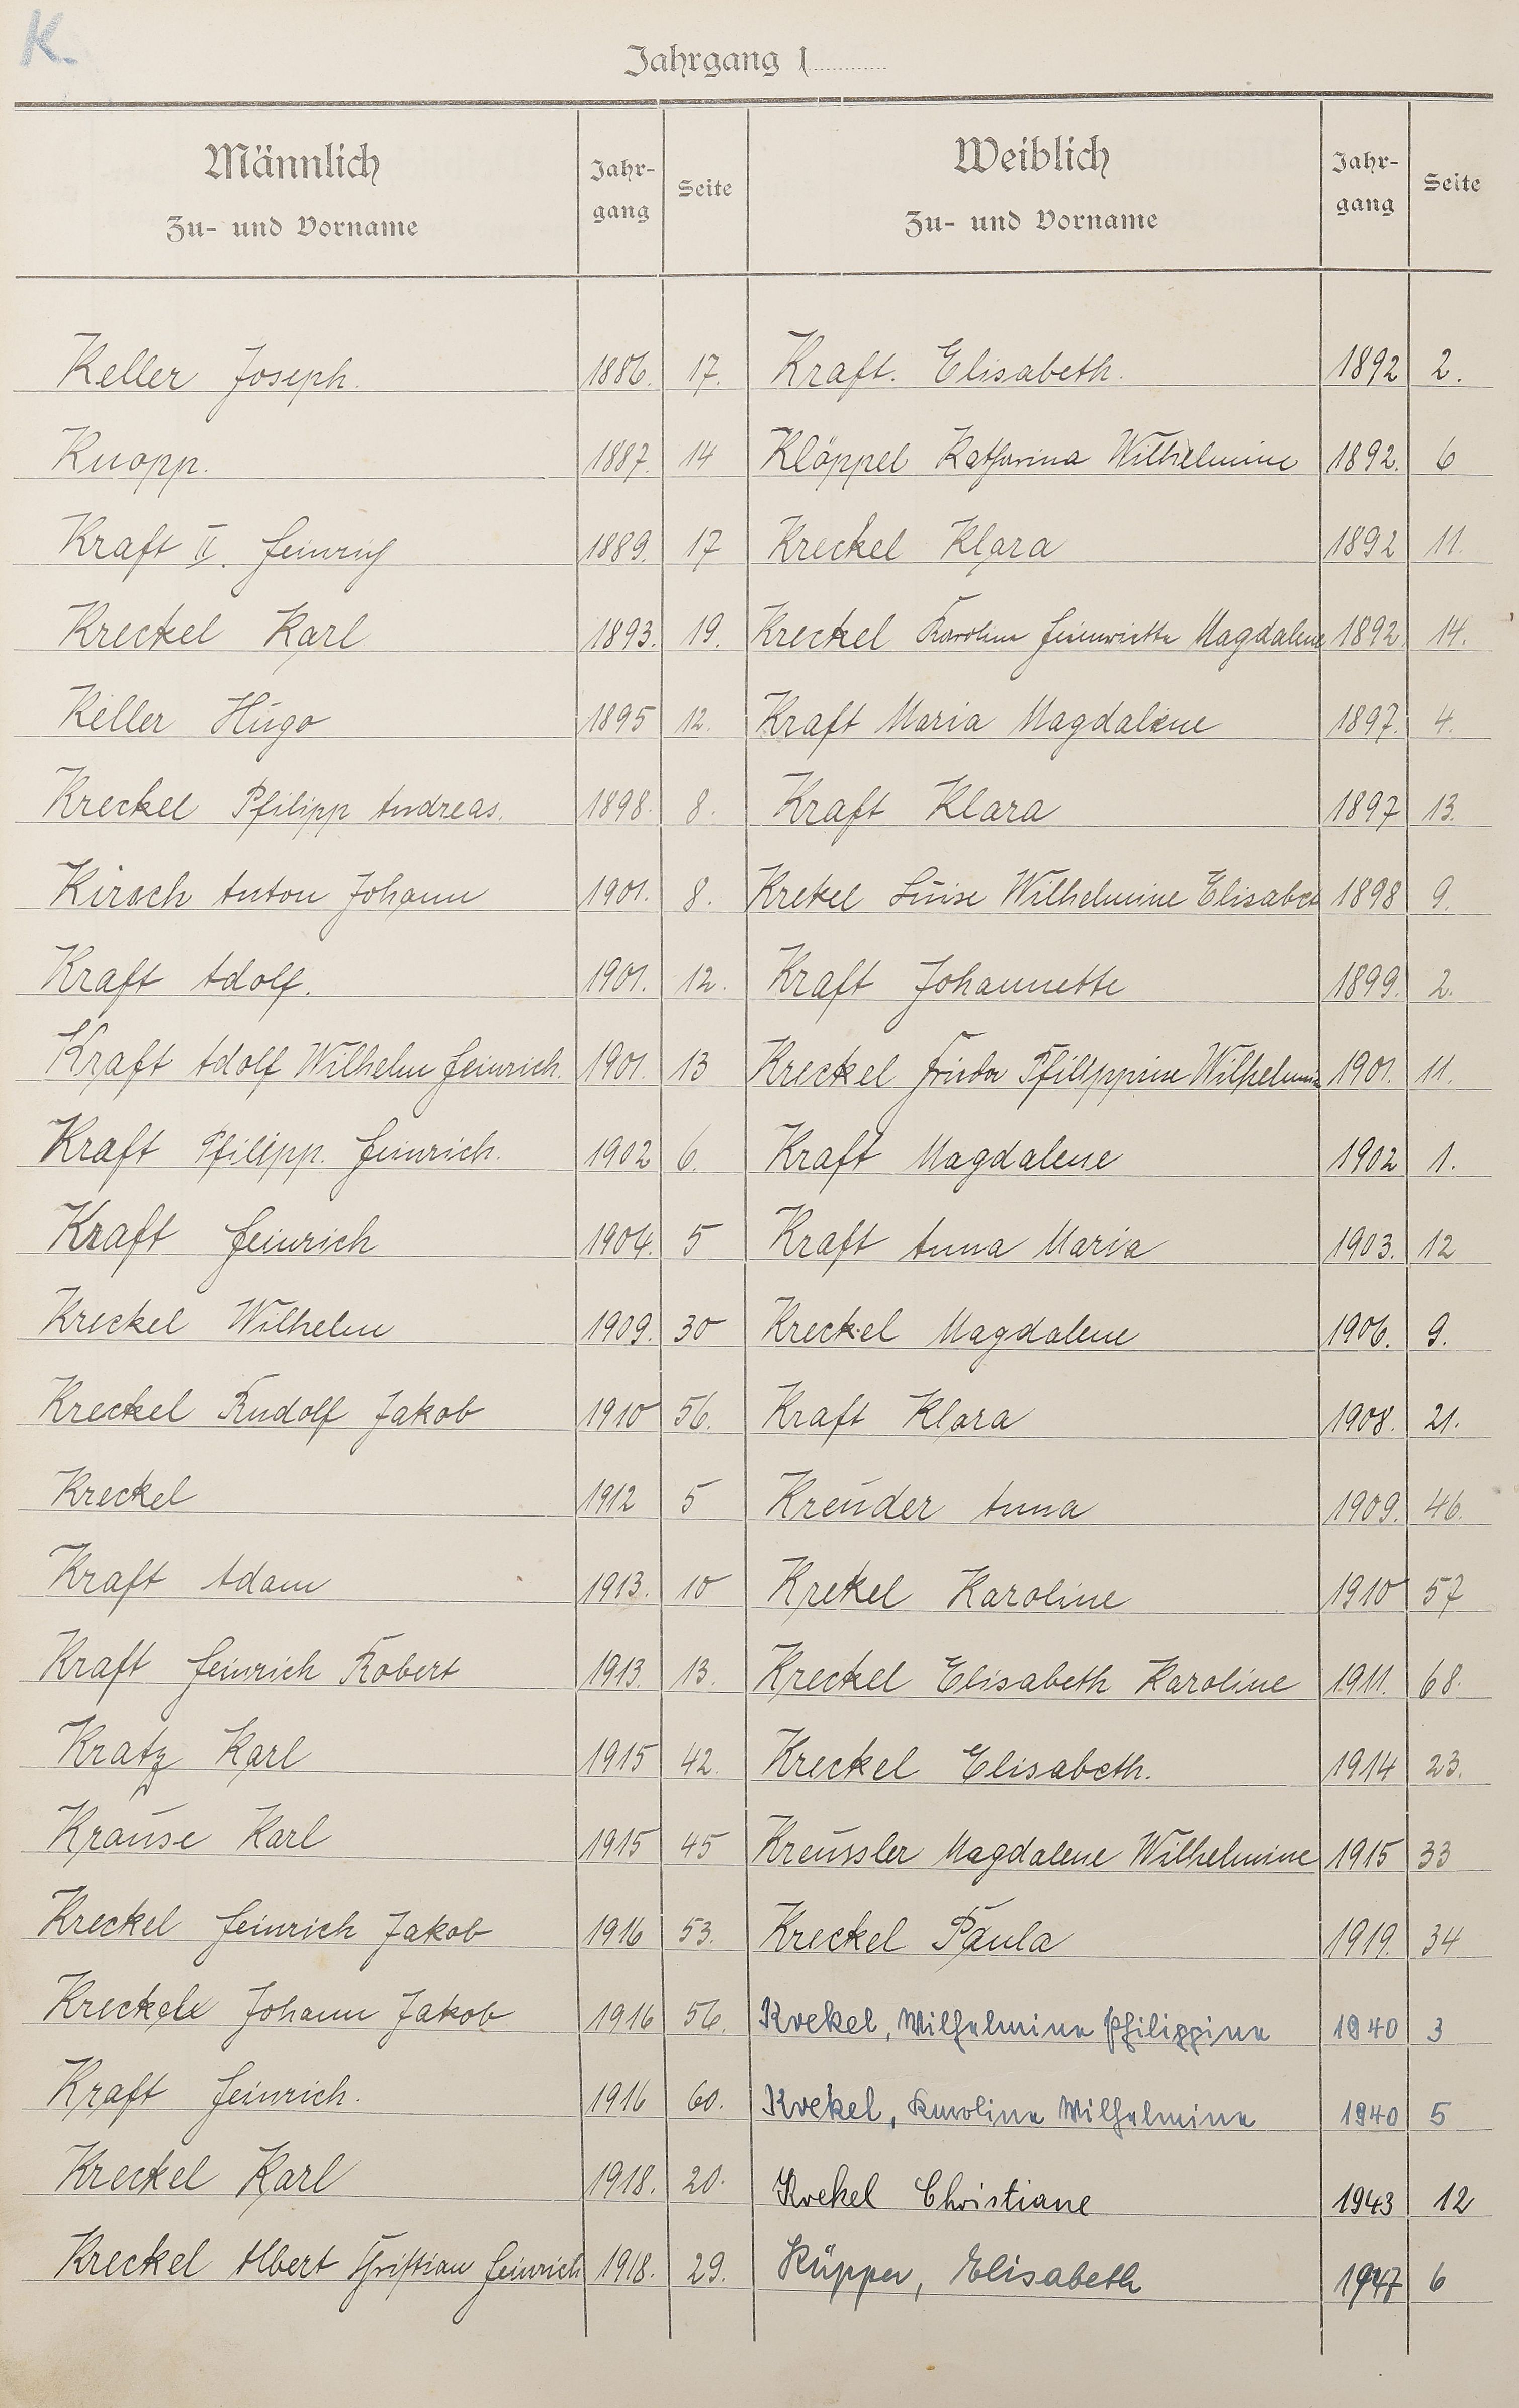 K.
Jahrgang 1
Männlich
Zu- und Vorname
Jahr-
gang
Seite
Weiblich
Zu- und Vorname
Jahr-
gang
Seite
Keller Joseph. 1886. 17. Kraft. Elisabeth. 1892 2.
Knopp. 1887. 14 Klöppel Katharina Wilhelmine 1892. 6
Kraft II. Heinrich 1889. 17 Kreckel Klara 1892 11.
Kreckel Karl 1893. 19. Kreckel Karoline Heinriette Magdalene 1892. 14.
Keller Hugo 1895 12. Kraft Maria Magdalene 1897. 4.
Kreckel Philipp Andreas. 1898. 8. Kraft Klara 1897 13.
Kirsch Anton Johann 1901. 8. Krekel Luise Wilhelmine Elisabet 1898 9.
Kraft Adolf. 1901. 12. Kraft Johannette 1899. 2.
Kraft Adolf Wilhelm Heinrich. 1901. 13 Kreckel Frieda Philippine Wilhelmine 1901. 11.
Kraft Philipp. Heinrich. 1902 6. Kraft Magdalene 1902 1.
Kraft Heinrich 1904. 5 Kraft Anna Maria 1903. 12
Kreckel Wilhelm 1909. 30 Kreckel Magdalene 1906. 9.
Kreckel Rudolf Jakob 1910 56. Kraft Klara 1908. 21.
Kreckel 1912 5 Kreuder Anna 1909. 46.
Kraft Adam 1913. 10 Krekel Karoline 1910 57
Kraft Heinrich Robert 1913. 13. Kreckel Elisabeth Karoline 1911. 68.
Kratz Karl 1915 42. Kreckel Elisabeth. 1914 23.
Krause Karl 1915 45 Kreussler Magdalene Wilhelmine 1915 33
Kreckel Heinrich Jakob 1916 53. Kreckel Paula 1919. 34
Kreckel Johann Jakob 1916 56. Krekel, Wilhelmine Philippine 1940 3
Kraft Heinrich. 1916 60. Krekel, Karoline Wilhelmine 1940 5
Kreckel Karl 1918. 20. Krekel Christiane 1943 12
Kreckel Albert Christian Heinrich 1918. 29. Küpper, Elisabeth 1947 6